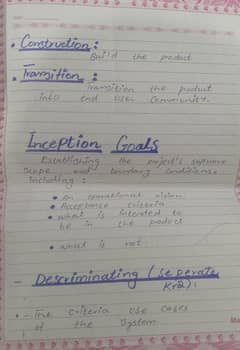 • Construction :
Build the product
• Transition :
Transition the product
into end user Community.
Inception Goals
Establishing the project's software
scope and boundary conditions.
Including :
• An operational vision
• Acceptance criteria
• what is intended to
be in the product
• what is not
- Descriminating (Seperate
Krna) :
- The criteria use cases
of the system